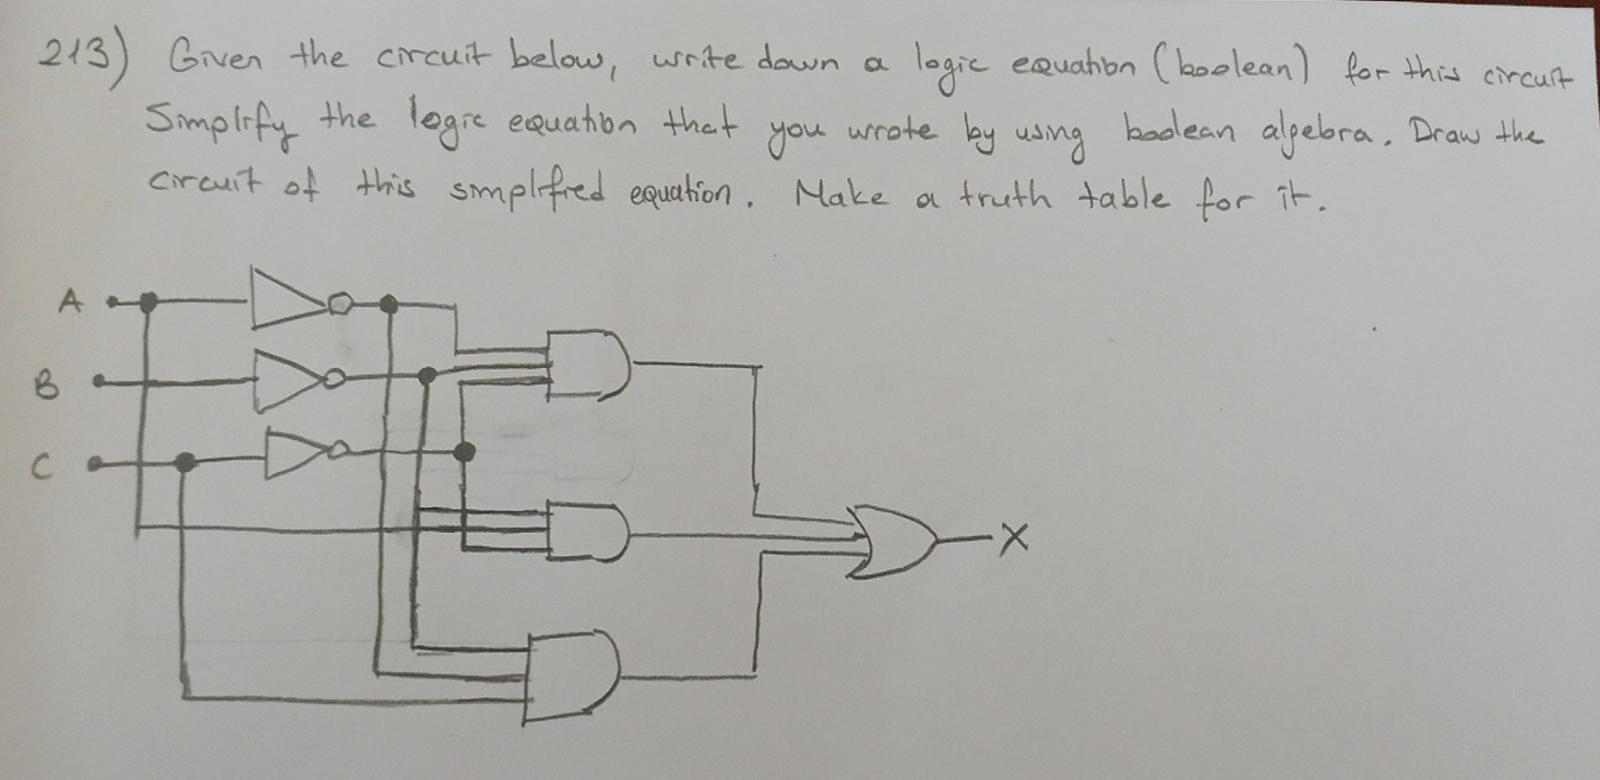 213) Given the circuit below, write down a logic equation (boolean) for this circuit
Simplify the logic equation that you wrote by using boolean algebra. Draw the
circuit of this simplified equation. Make a truth table for it.
A
B
C
X